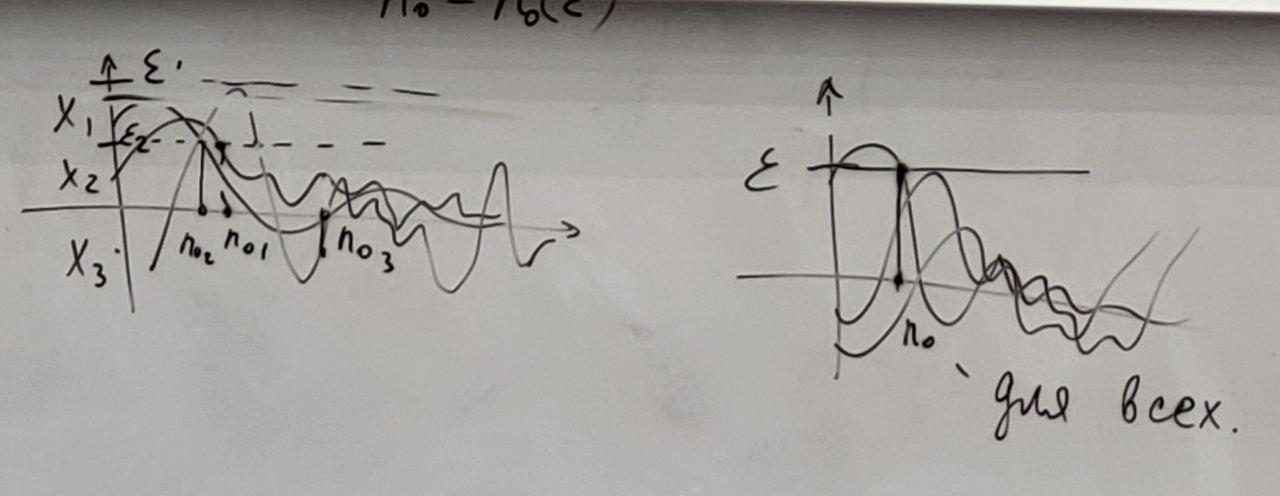 n₀ = n₀(ε)
ε'
x₁
ε₂
x₂
x₃
n₀₂ n₀₁ n₀₃
ε
n₀
для всех.